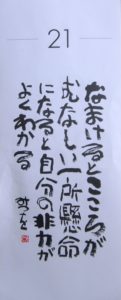 21
なまけるとこころが
むなしい一所懸命
になると自分の非力が
よくわかる